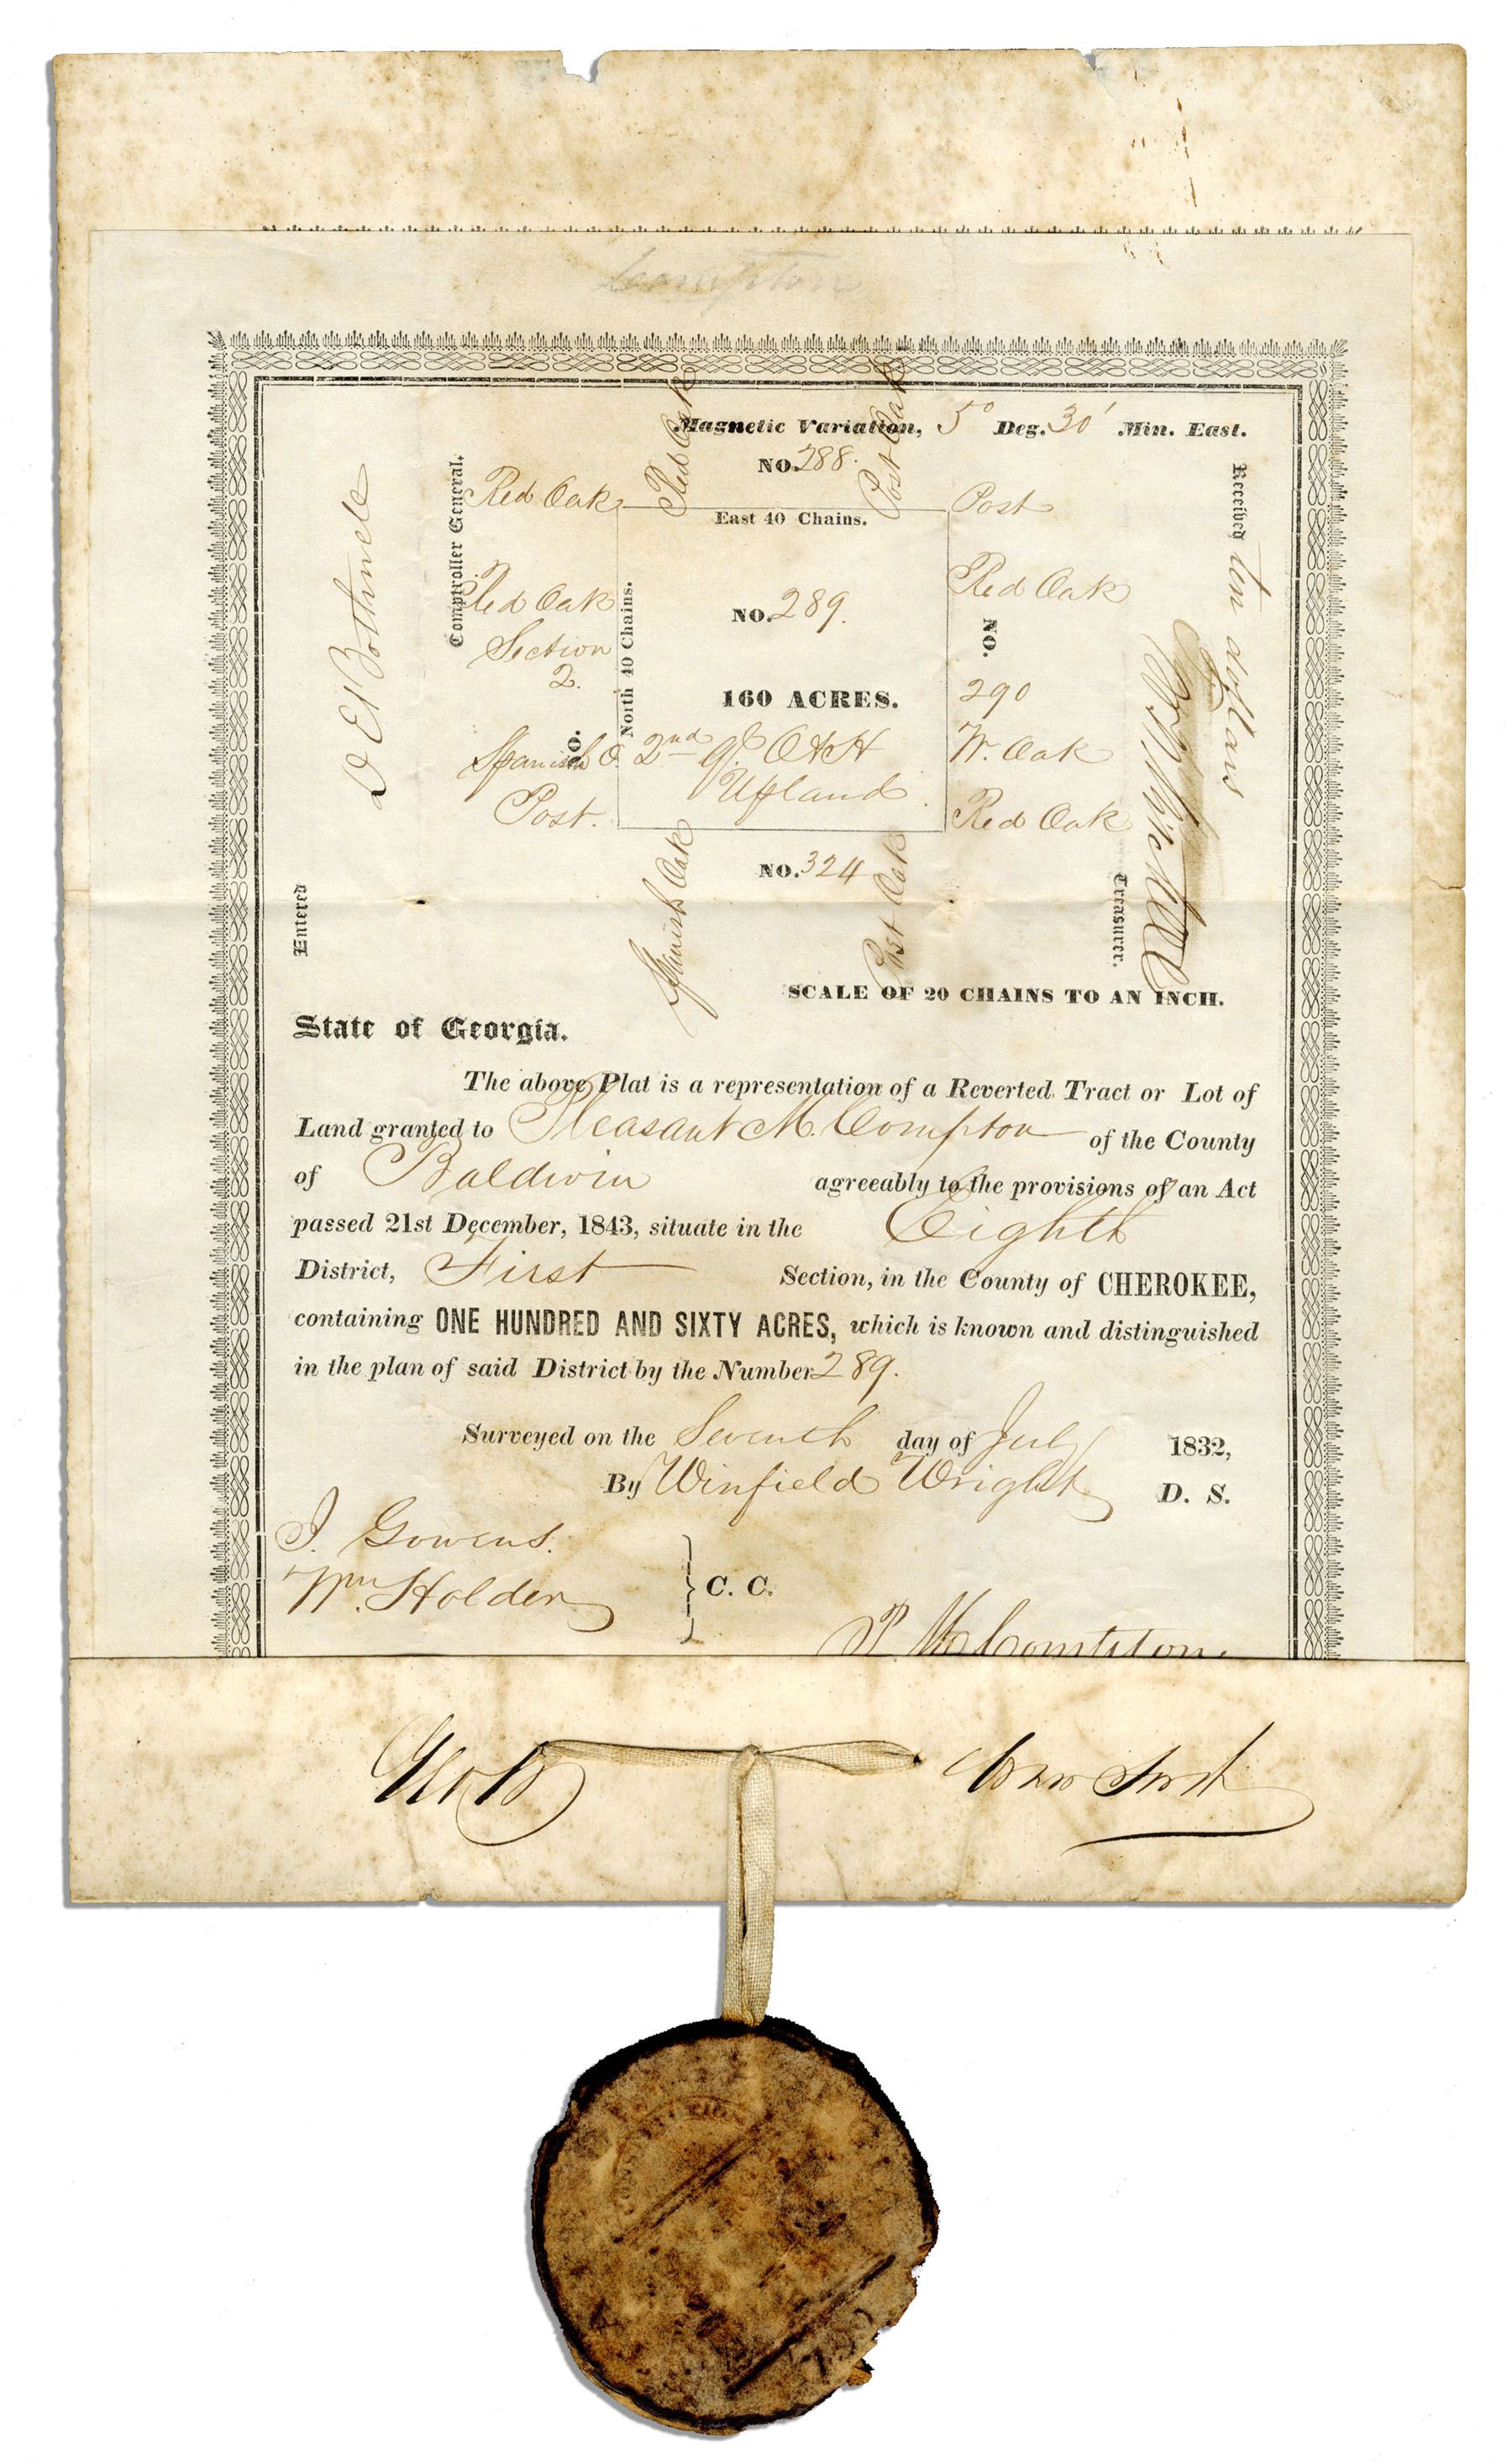 Compton
Magnetic Variation, 5° Deg. 30' Min. East.
NO. 288.
Red Oak
Post Oak
Red Oak
Post
East 40 Chains.
Comptroller General.
Received ten dollars
Red Oak
Red Oak
NO. 289.
NO.
Section
2.
North 40 Chains.
160 ACRES.
290
NO.
Spanish O.
2nd q. O & H
W. Oak
Upland
Post.
Red Oak
NO. 324
Spanish Oak
Post Oak
Entered
Treasurer.
SCALE OF 20 CHAINS TO AN INCH.
State of Georgia.
The above Plat is a representation of a Reverted Tract or Lot of
Land granted to Pleasant M. Compton of the County
of Baldwin agreeably to the provisions of an Act
passed 21st December, 1843, situate in the Eighth
District, First Section, in the County of CHEROKEE,
containing ONE HUNDRED AND SIXTY ACRES, which is known and distinguished
in the plan of said District by the Number 289.
Surveyed on the Seventh day of July 1832,
By Winfield Wright D. S.
J. Gowens.
Wm. Holden
C. C.
P. M. Compton
Geo W Crawford
CONSTITUTION
1799